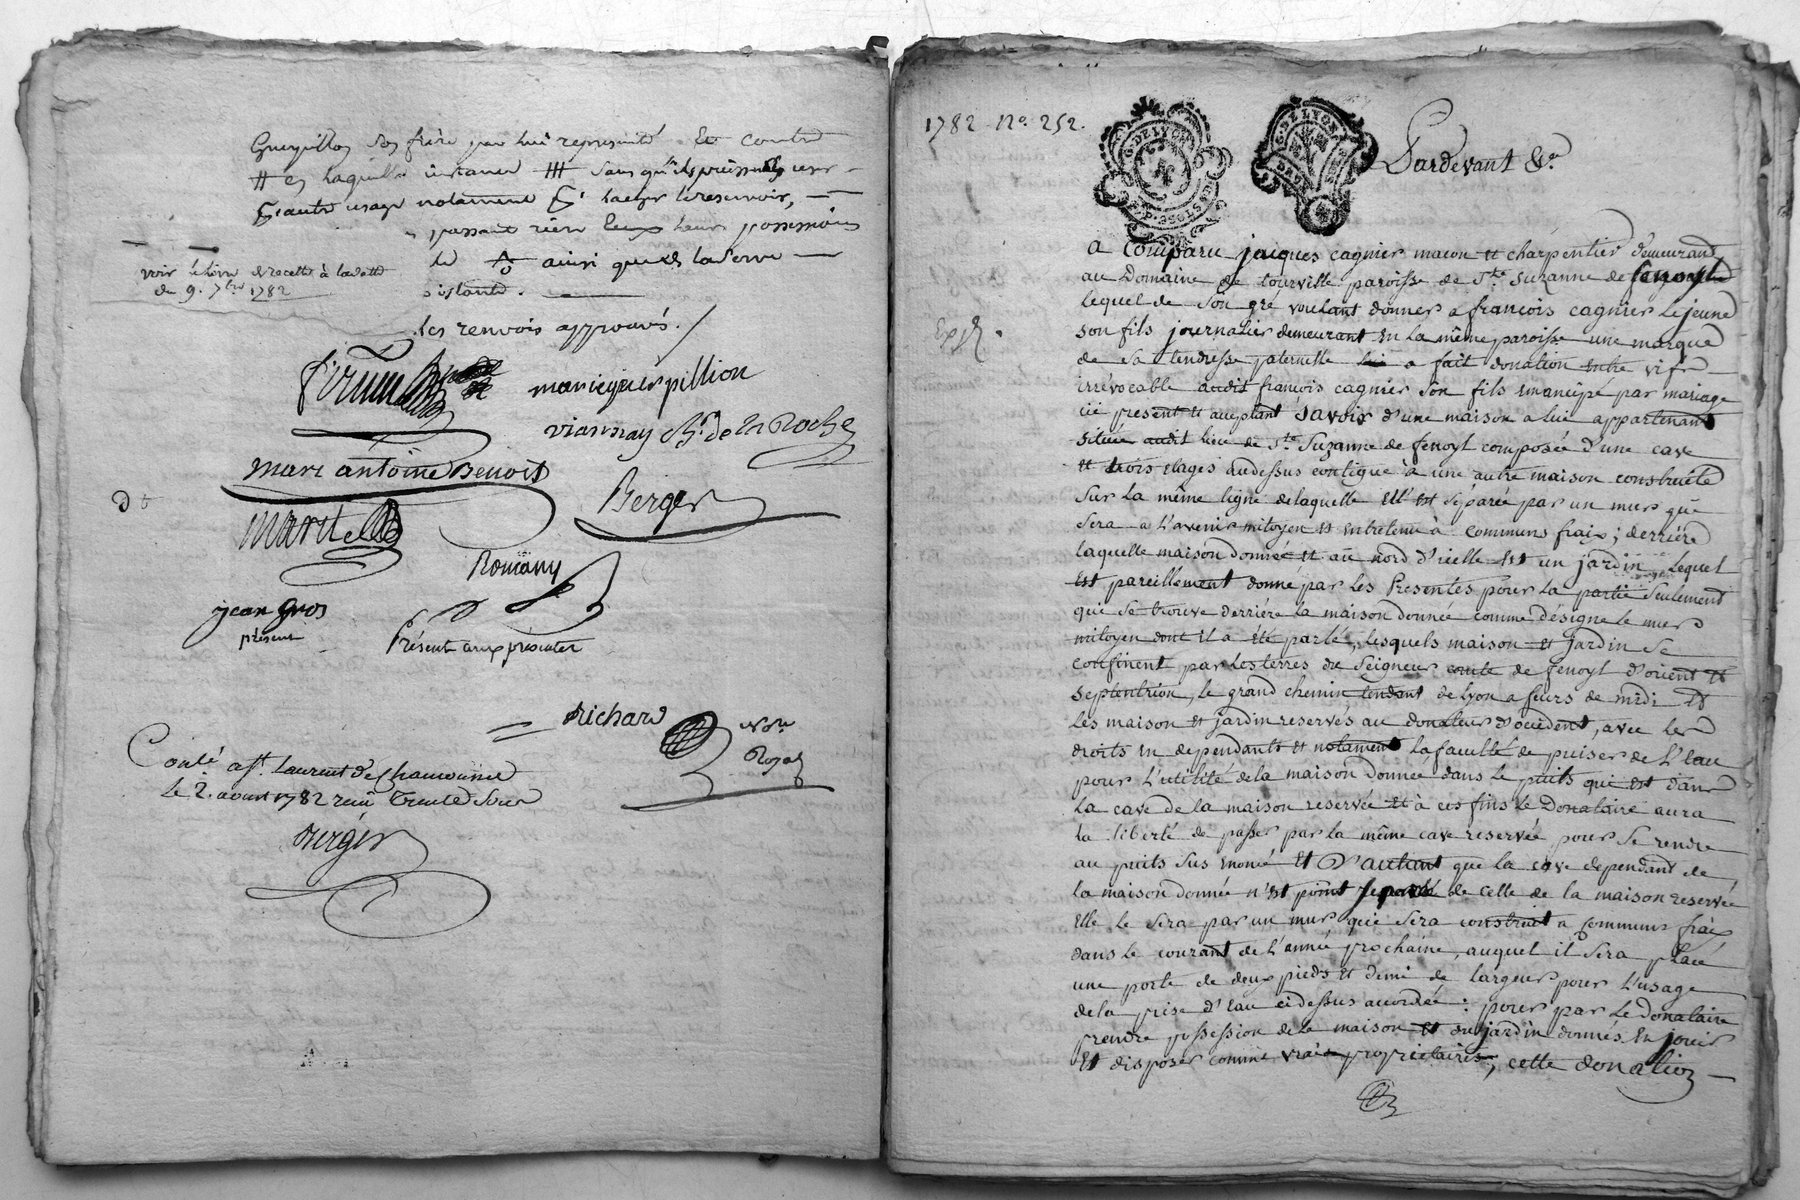 frère par lui représenté et
laquelle instance sans qu'ils puissent user
autre usage notament
passant rière leurs possessions
de ainsi que de
voir le livre de recette à
du 9. 7bre 1782
les renvois approuvés.
pillion
viannay De la Roche
marc antoine Benoit
Berger
Romany
jean Gros
présent
Présent aux présentes
Richard
nore
Royal
Conlé a St. Laurent de Chamousset
Le 2. aoust 1782 reçu trente Sous
1782 No. 252.
G. DE LYON
G. DE LYON
Pardevant &a
a Comparu jacques cagnier macon et charpentier demeurand
au Domaine de tourville paroisse de Ste. Suzanne de fenoyl
lequel de Son gré voulant donner a francois cagnier Lejeune
son fils journalier demeurant en la même paroisse une marque
de sa tendresse paternelle a fait donation entre vifs
irrévocable audit françois cagnier Son fils emancipé par mariage
ici present et aceptant Savoir d'une maison a lui appartenant
située audit lieu de Ste Suzanne de fenoyl composée d'une cave
et trois etages audessus contigue à une autre maison construite
sur la même ligne delaquelle Ell'est séparée par un mur qui
sera a l'avenir mitoyen et entretenu à communs fraix; derrière
laquelle maison donnée et au nord d'icelle est un jardin lequel
est pareillement donné par les Presentes pour la partie seulement
qui se trouve derrière la maison donnée comme désigne le mur
mitoyen dont il a eté parlé, lesquels maison et jardin se
confinent par les terres du Seigneur comte de fenoyl d'orient et
septentrion, le grand chemin tendant de lyon a feurs de midi et
les maison et jardin reservés au donateur d'occident, avec les
droits en dependants et notament la faculté de puiser de l'eau
pour l'utilité dela maison donnée dans le puits qui est dans
la cave de la maison reservée et à ces fins le Donataire aura
la liberté de passer par la même cave reservée pour se rendre
au puits sus enoncé et D'autant que la cave dependant de
la maison donnée n'est point separée de celle de la maison reservée
elle le sera par un mur qui sera construit a communs fraix
dans le courant de l'année prochaine, auquel il sera placé
une porte de deux pieds et demi de largeur pour l'usage
dela prise d'eau cidessus accordée : pour par le Donataire
prendre possession de la maison et du jardin donnés en jouir
et disposer comme vrais proprietaires, cette donation